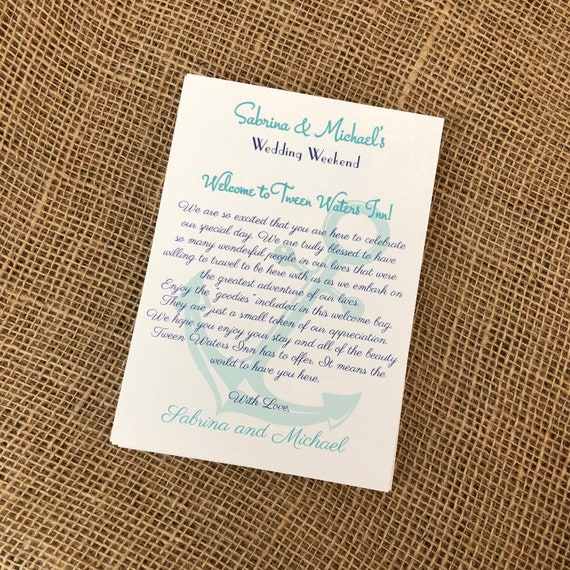 Sabrina & Michael's
Wedding Weekend
Welcome to Tween Waters Inn!
We are so excited that you are here to celebrate
our special day. We are truly blessed to have
so many wonderful people in our lives that were
willing to travel to be here with us as we embark on
the greatest adventure of our lives.
Enjoy the "goodies" included in this welcome bag.
They are just a small token of our appreciation.
We hope you enjoy your stay and all of the beauty
Tween Waters Inn has to offer. It means the
world to have you here.
With Love,
Sabrina and Michael